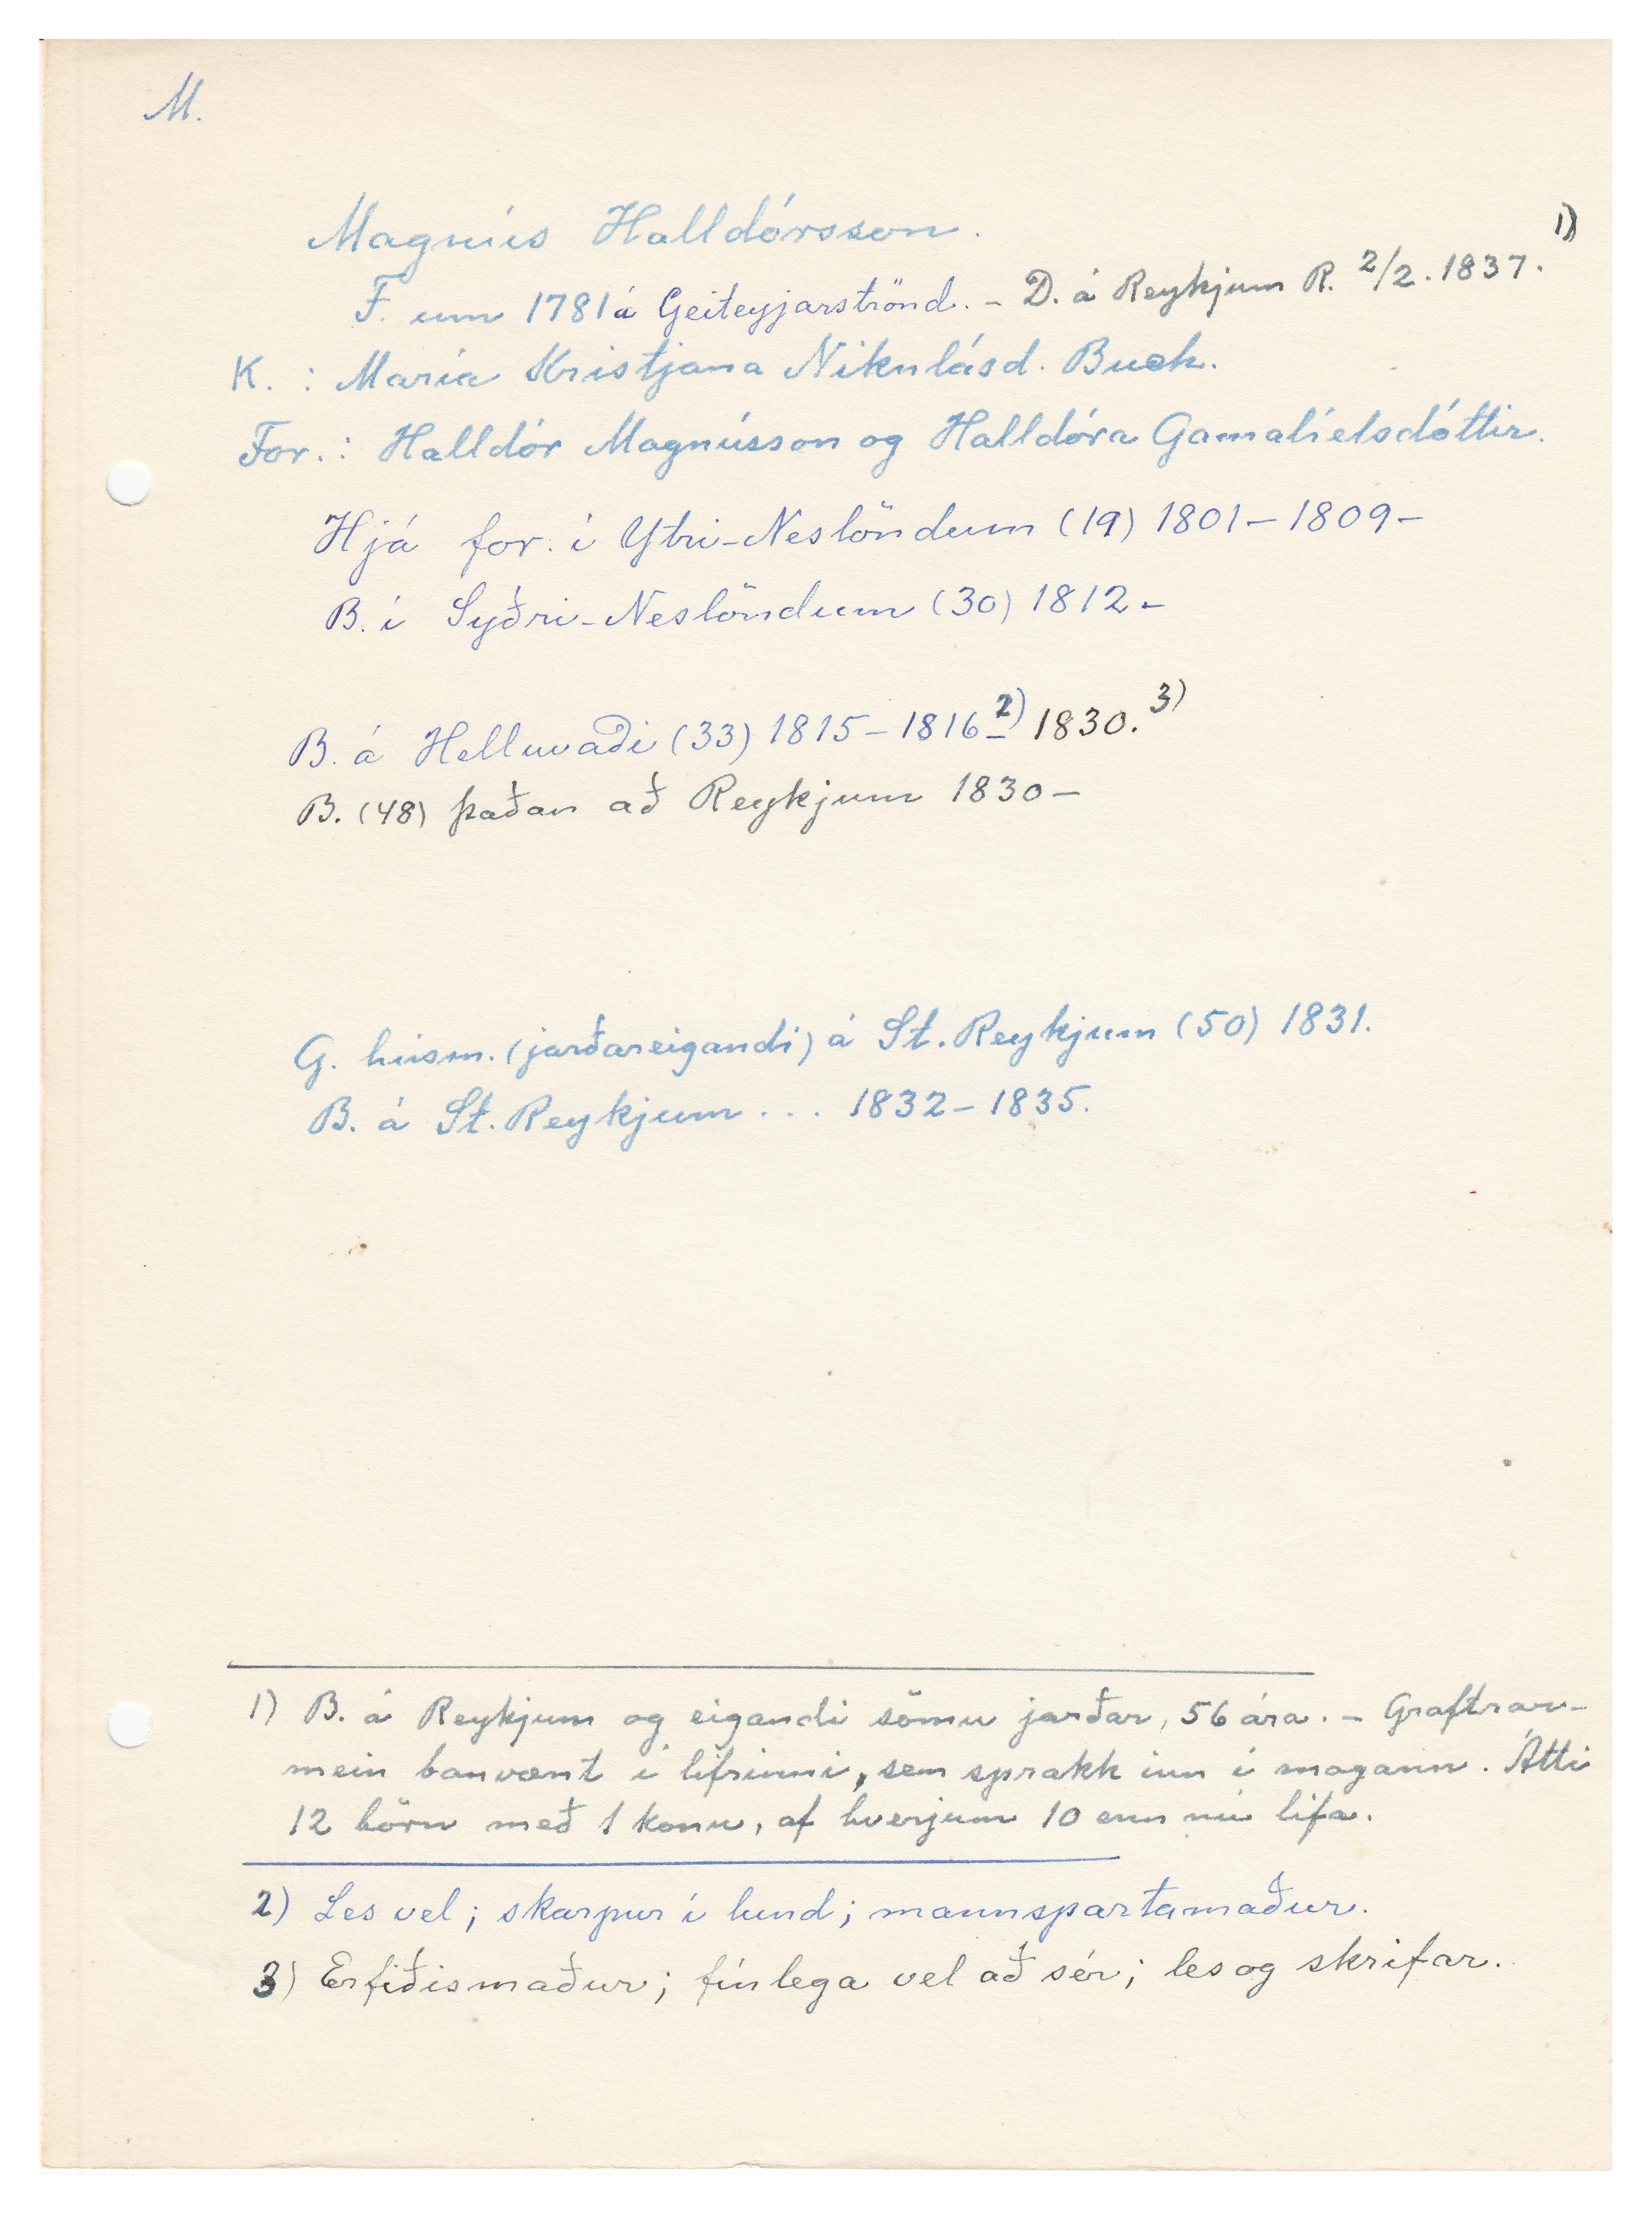 M.
Magnús Halldórsson.
F. um 1781 á Geiteyjarströnd. - D. á Reykjum R. 2/2. 1837. 1)
K. : María Kristjana Nikulásd. Buch.
For. : Halldór Magnússon og Halldóra Gamalíelsdóttir.
Hjá for. í Ytri-Neslöndum (19) 1801 - 1809 -
B. í Syðri-Neslöndum (30) 1812 -
B. á Helluvaði (33) 1815 - 1816 - 2) 1830. 3)
B. (48) þaðan að Reykjum 1830 -
G. húsm. (jarðareigandi) á St. Reykjum (50) 1831.
B. á St. Reykjum ... 1832 - 1835.
1) B. á Reykjum og eigandi sömu jarðar, 56 ára. - Graftrar-
mein banvænt í lifrinni, sem sprakk inn í magann. Átti
12 börn með 1 konu, af hverjum 10 enn nú lifa.
2) Les vel; skarpur í lund; mannspartamaður.
3) Erfiðismaður; fínlega vel að sér; les og skrifar.